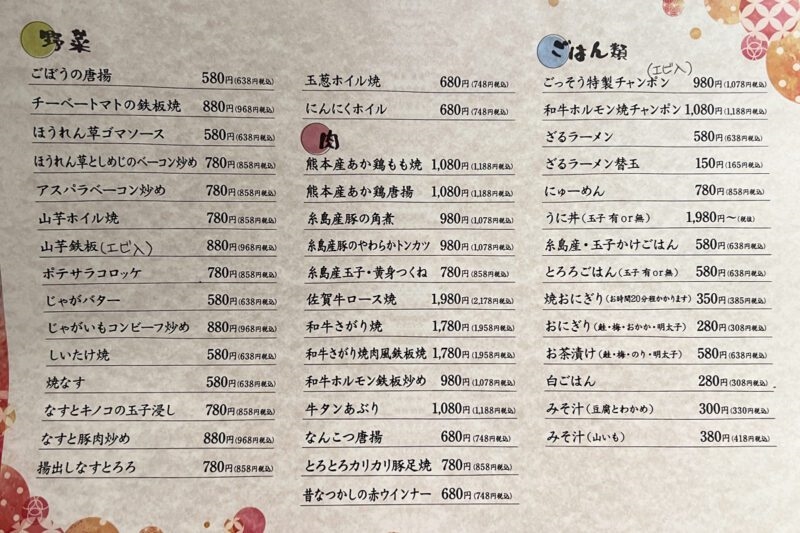 野菜
ごぼうの唐揚 580円(638円税込)
チーベートマトの鉄板焼 880円(968円税込)
ほうれん草ゴマソース 580円(638円税込)
ほうれん草としめじのベーコン炒め 780円(858円税込)
アスパラベーコン炒め 780円(858円税込)
山芋ホイル焼 780円(858円税込)
山芋鉄板(エビ入) 880円(968円税込)
ポテサラコロッケ 780円(858円税込)
じゃがバター 580円(638円税込)
じゃがいもコンビーフ炒め 880円(968円税込)
しいたけ焼 580円(638円税込)
焼なす 580円(638円税込)
なすとキノコの玉子浸し 780円(858円税込)
なすと豚肉炒め 880円(968円税込)
揚出しなすとろろ 780円(858円税込)
玉葱ホイル焼 680円(748円税込)
にんにくホイル 680円(748円税込)
肉
熊本産あか鶏もも焼 1,080円(1,188円税込)
熊本産あか鶏唐揚 1,080円(1,188円税込)
糸島産豚の角煮 980円(1,078円税込)
糸島産豚のやわらかトンカツ 980円(1,078円税込)
糸島産玉子・黄身つくね 780円(858円税込)
佐賀牛ロース焼 1,980円(2,178円税込)
和牛さがり焼 1,780円(1,958円税込)
和牛さがり焼肉風鉄板焼 1,780円(1,958円税込)
和牛ホルモン鉄板炒め 980円(1,078円税込)
牛タンあぶり 1,080円(1,188円税込)
なんこつ唐揚 680円(748円税込)
とろとろカリカリ豚足焼 780円(858円税込)
昔なつかしの赤ウインナー 680円(748円税込)
ごはん類
(エビ入)
ごっそう特製チャンポン 980円(1,078円税込)
和牛ホルモン焼チャンポン 1,080円(1,188円税込)
ざるラーメン 580円(638円税込)
ざるラーメン替玉 150円(165円税込)
にゅーめん 780円(858円税込)
うに丼(玉子 有or無) 1,980円〜(税抜)
糸島産・玉子かけごはん 580円(638円税込)
とろろごはん(玉子 有or無) 580円(638円税込)
焼おにぎり(お時間20分程かかります) 350円(385円税込)
おにぎり(鮭・梅・おかか・明太子) 280円(308円税込)
お茶漬け(鮭・梅・のり・明太子) 580円(638円税込)
白ごはん 280円(308円税込)
みそ汁(豆腐とわかめ) 300円(330円税込)
みそ汁(山いも) 380円(418円税込)